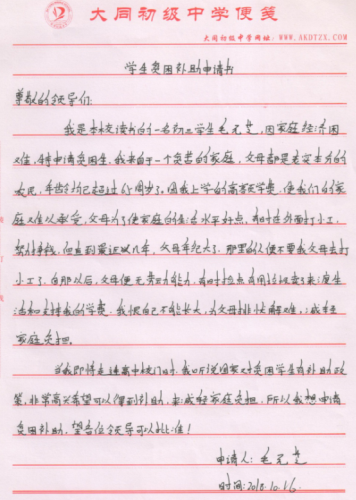 大同初级中学便笺
大同初级中学网址：WWW.AKDTZX.COM
学生贫困补助申请书
尊敬的领导们：
我是本校读书的一名初三学生毛元芝，因家庭经济困
难，特申请贫困生，我来自于一个贫苦的家庭，父母都是老实本分的
农民，年龄均已超过60周岁了。因我上学的高额学费，使我们的家
庭难以承受，父母为了使家庭的生活水平好点，有时去外面打小工，
努力挣钱，但直到最近以几年，父母年纪大了，那里的人便不要我父母去打
小工了。自那以后，父母便无劳动能力，有时捡点有用垃圾卖了来度生
活和支持我的学费，我恨自己不能长大，为父母排忧解难，减轻
家庭负担。
当我即将走进高中校门时，我听说国家对贫困学生有补助政
策，非常高兴希望可以得到补助，来减轻家庭负担，所以我想申请
贫困补助，望各位领导可以批准！
申请人：毛元芝
时间：2018.10.16